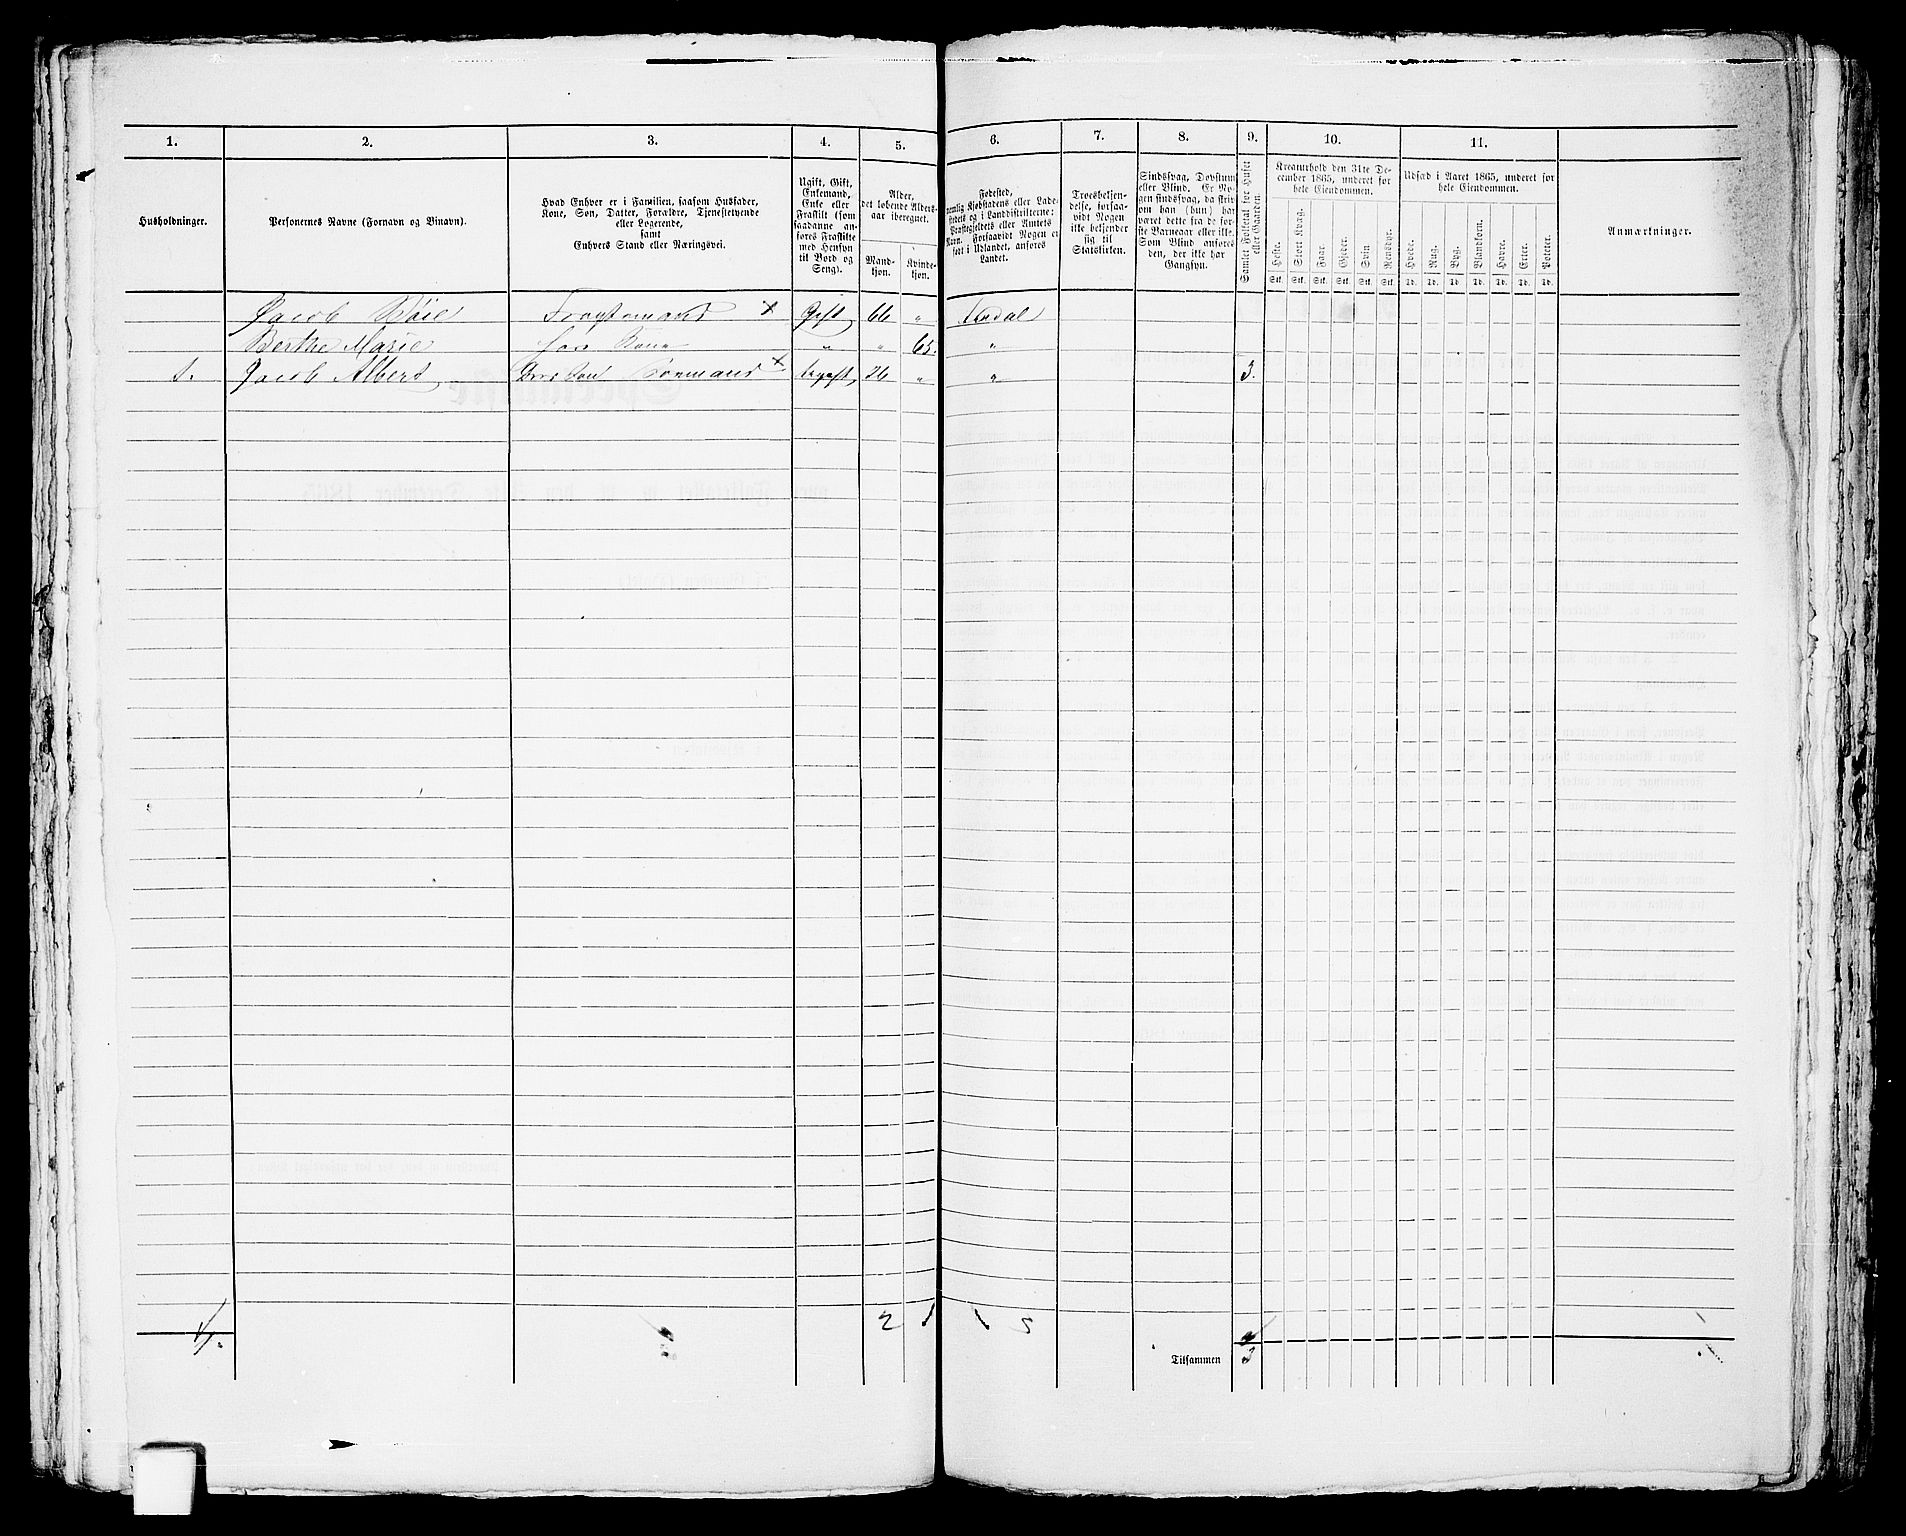 1. 2. 3. 4. 5. 6. 7. 8. 9. 10. 11.
Husholdninger.
Personernes Navne (Fornavn og Binavn).
Hvad Enhver er i Familien, saasom Husfader,
Kone, Søn, Datter, Forældre, Tjenestetyende
eller Logerende,
samt
Enhvers Stand eller Næringsvei.
Ugift, Gift,
Enkemand,
Enke eller
Fraskilt (som
saadanne an-
føres Fraskilte
med Hensyn
til Bord og
Seng).
Alder,
det løbende Alders-
aar iberegnet.
Mand-
kjøn.
Kvinde-
kjøn.
Fødested,
nemlig Kjøbstadens eller Lade-
stedets og i Landdistrikterne:
Præstegjeldets eller Amtets
Navn. Forsaavidt Nogen er
født i Udlandet, anføres
Landet.
Troesbekjen-
delse, forsaa-
vidt Nogen
ikke bekjender
sig til
Statskirken.
Sindssvag, Døvstum
eller Blind. Er No-
gen sindssvag, da skriv
om han (hun) har
været dette fra de før-
ste Barneaar eller ikke.
Som Blind anføres
den, der ikke har
Gangsyn.
Samlet Folketal for Huset
eller Gaarden.
Kreaturhold den 31te De-
cember 1865, underet for
hele Eiendommen.
Heste.
Stort Kvæg.
Faar.
Gjeder.
Svin.
Rensdyr.
Stk. Stk. Stk. Stk. Stk. Stk.
Udsæd i Aaret 1865, underet for
hele Eiendommen.
Hvede.
Rug.
Byg.
Blandkorn.
Havre.
Erter.
Poteter.
Td. Td. Td. Td. Td. Td. Td.
Anmærkninger.
Jacob Bøie × Gift 66 „
Berthe Marie Kone „ „ 65. „
1. Jacob Albert Sømand × ugift 26 „ „ 3.
1/. 2 1 1
Tilsammen 3